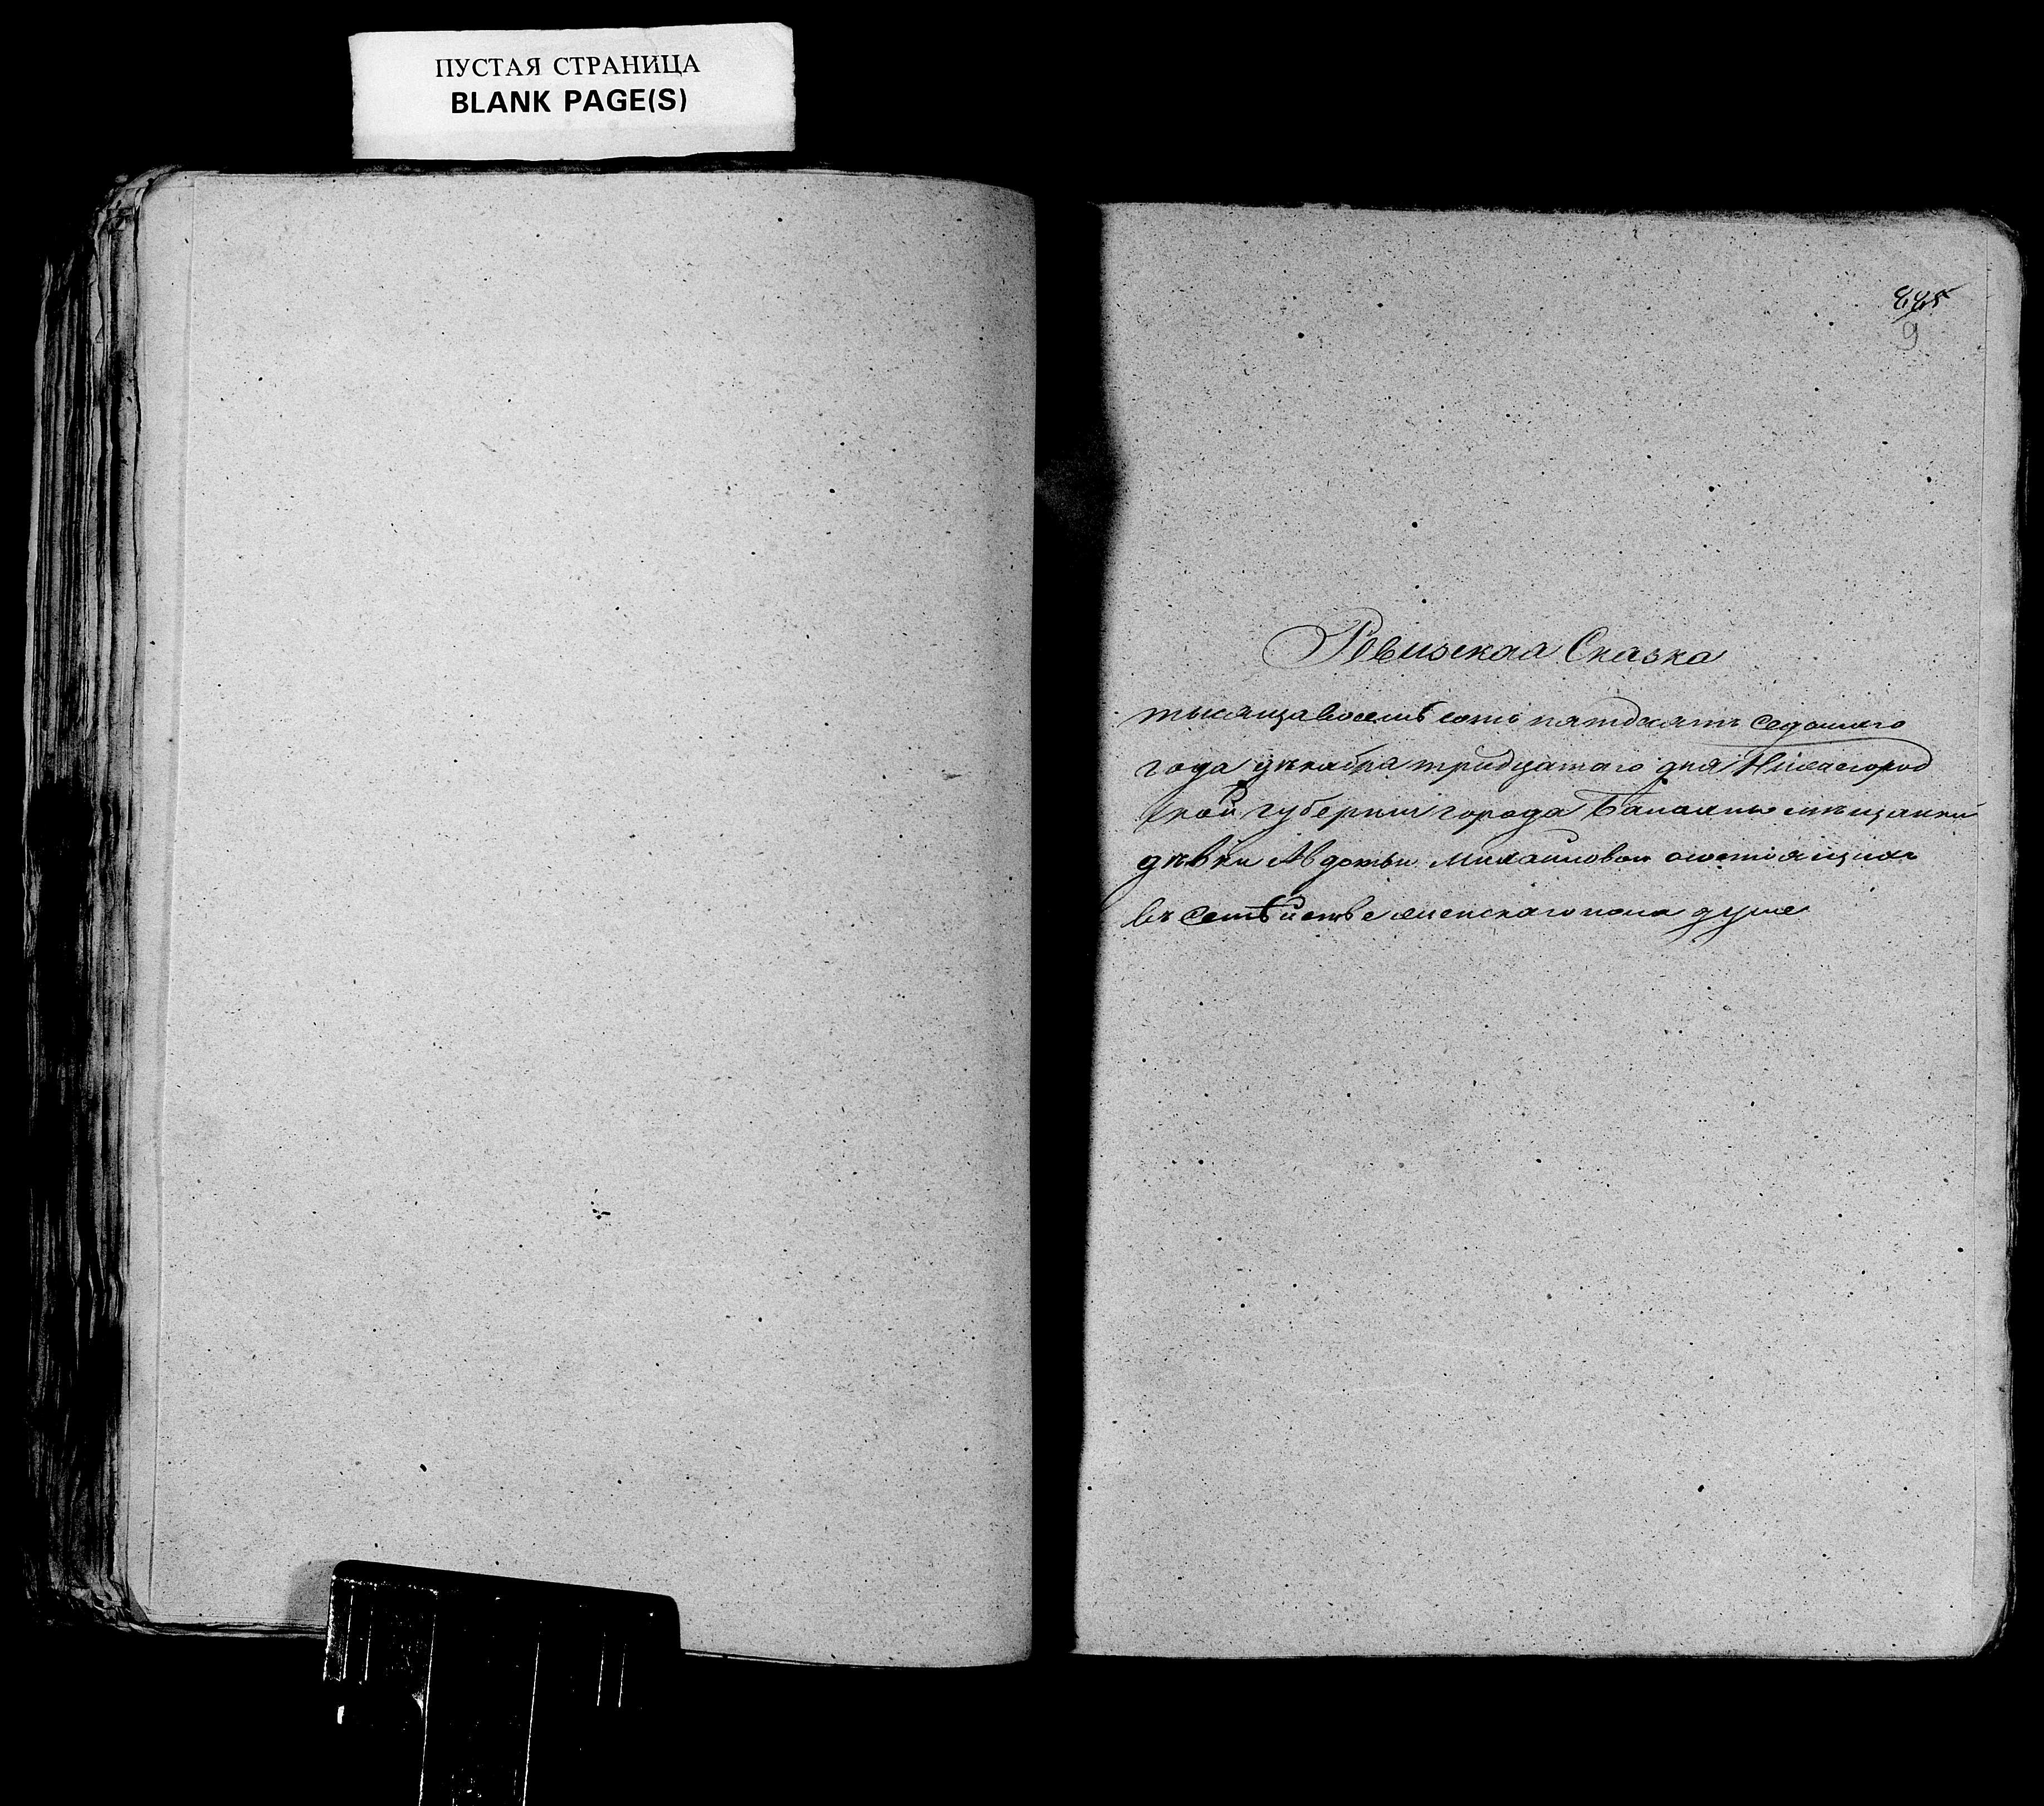 ПУСТАЯ СТРАНИЦА
BLANK PAGE(S)
885
9
Ревизская Сказка
тысяща восемь сотъ пятдесятъ седьмаго
года декабря тридцатаго дня Нижегород
ской губернии города Балахны мещанки
девки Авдотьи Михайловой состоящихъ
въ семействе женскаго пола душе